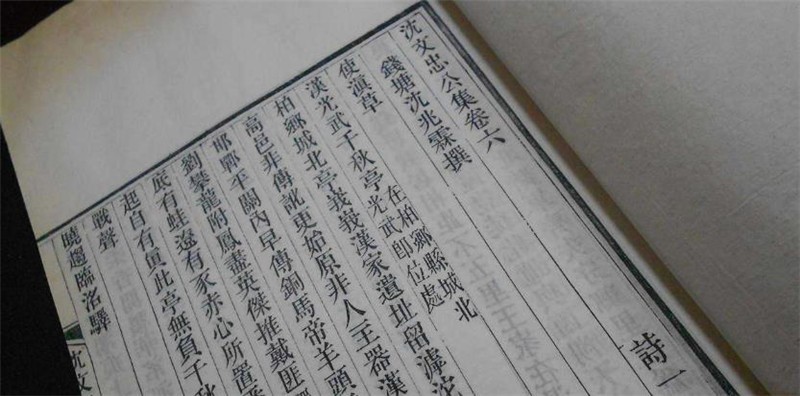 沈文忠公集卷六 詩一
錢塘沈兆霖撰
使滇草
漢光武千秋亭
在柏鄉縣城北
光武卽位處
柏鄉城北亭峩峩漢家遺址留滹沱
高邑非傳訛更始原非人王器漢
邯鄲平關內早傳銅馬帝羊頭
劉攀龍附鳳盡英傑推戴匪
底有蛙遼有豕赤心所置
起自有眞此亭無負千秋
戰聲
曉趨臨洺驛
沈文